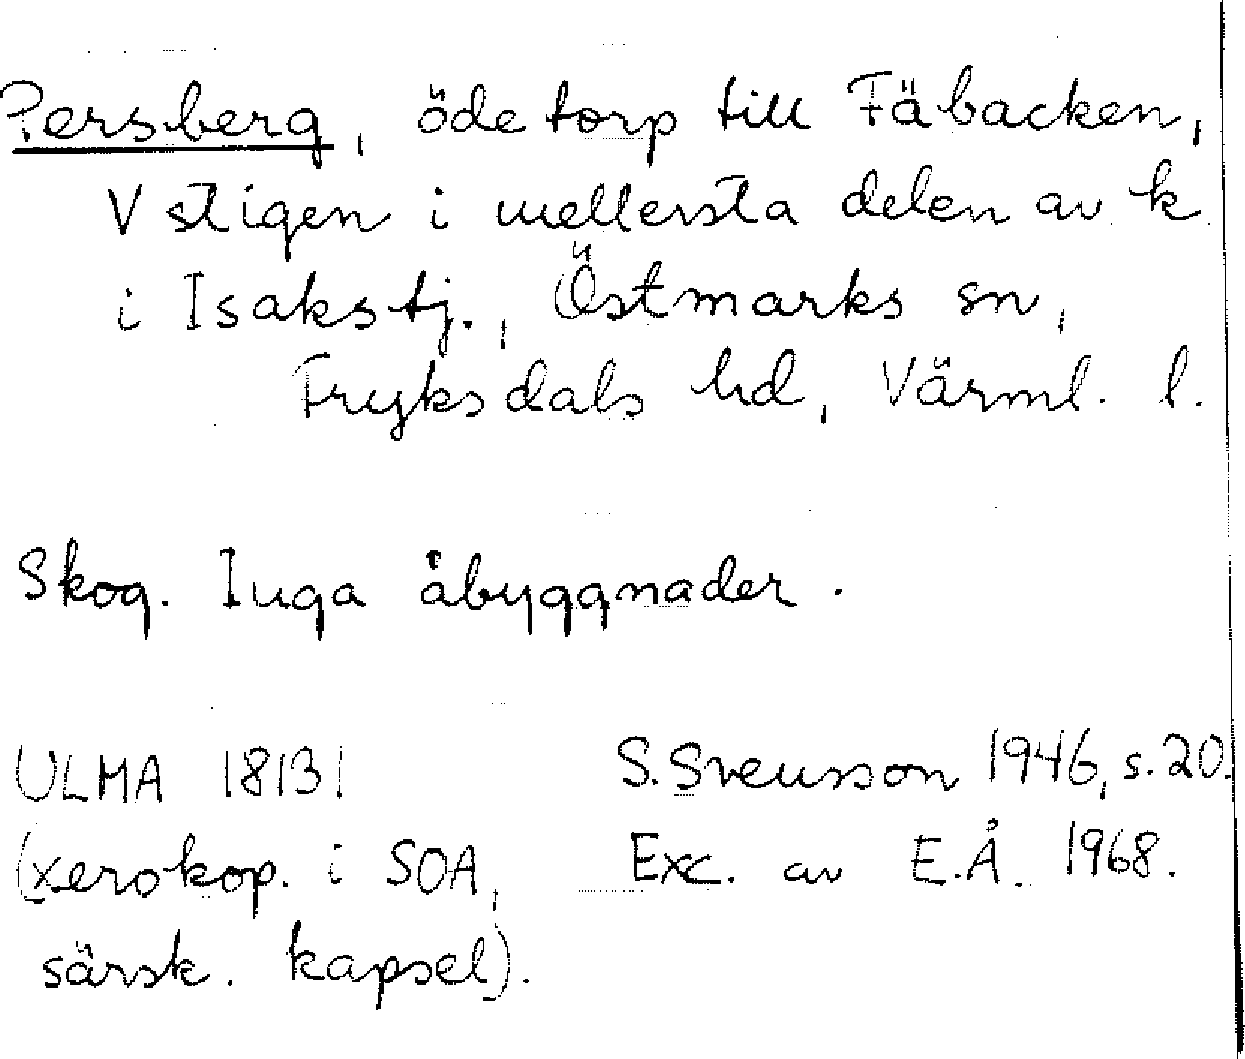 Persberg, öde torp till Fäbacken,
V stigen i mellersta delen av k
i Isakstj., Östmarks sn,
Fryksdals hd, Värml. l.
Skog. Inga åbyggnader.
ULMA 18131 S. Svensson 1946, s. 20.
(xerokop. i SOA, Exc. av E.Å. 1968.
särsk. kapsel).